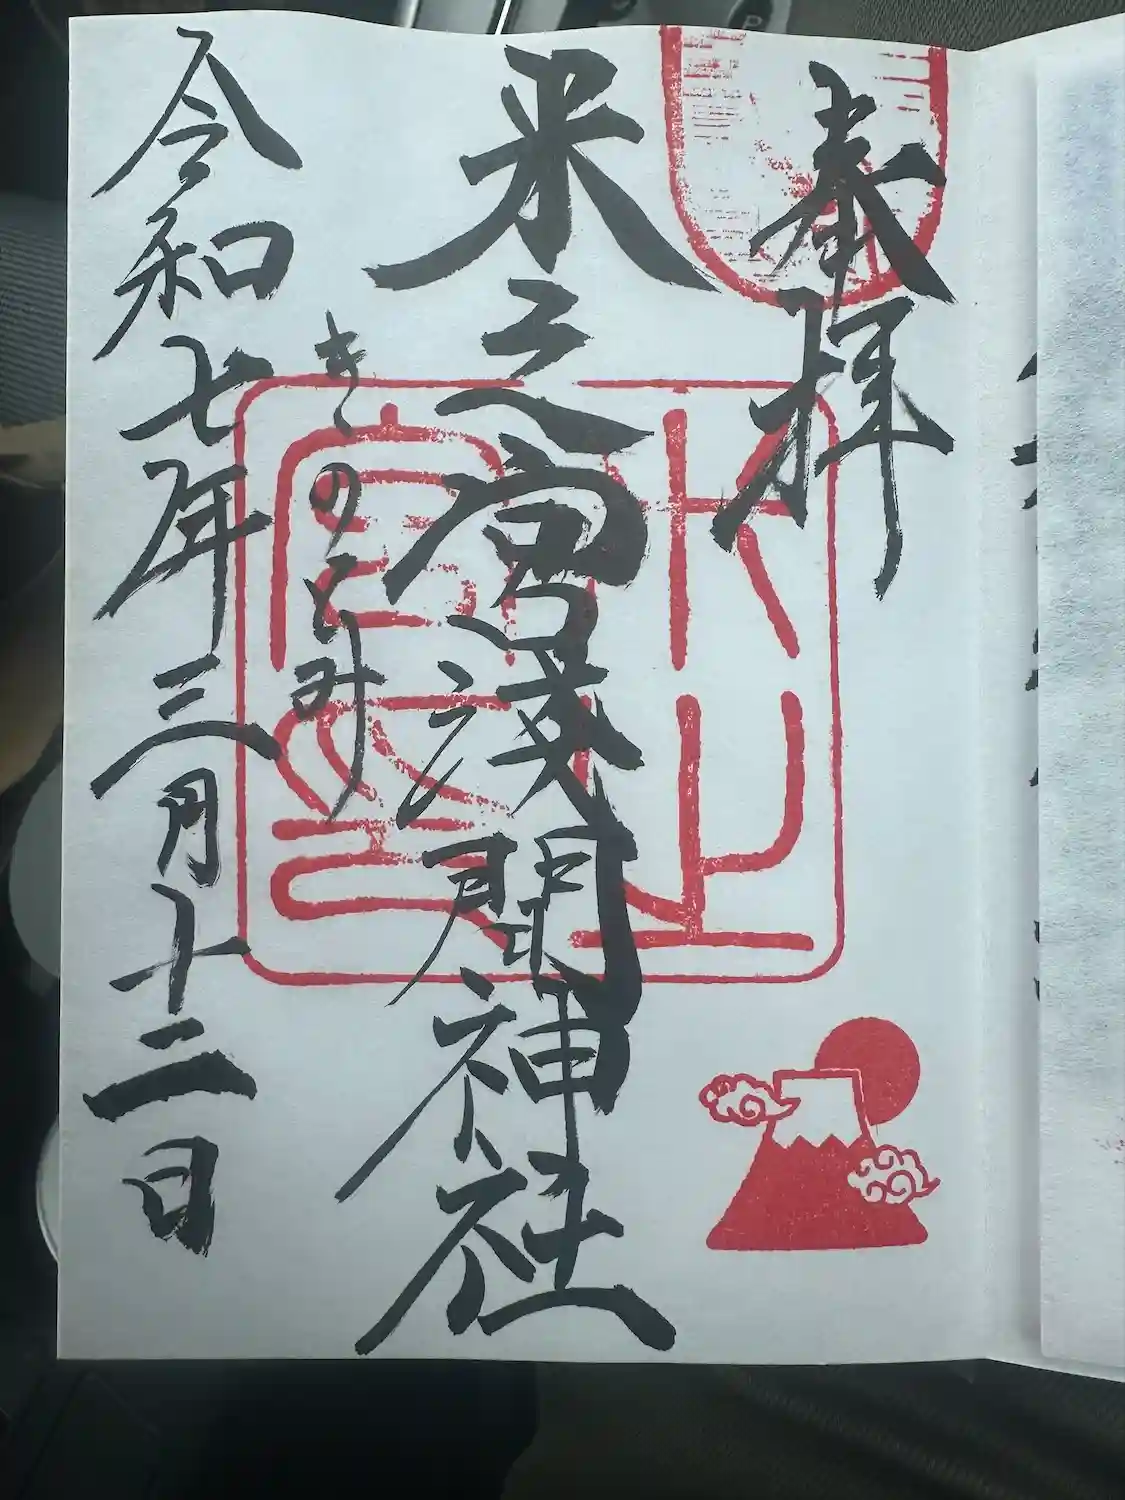 奉拝
米之宮淺間神社
きのとみ
令和七年三月十二日